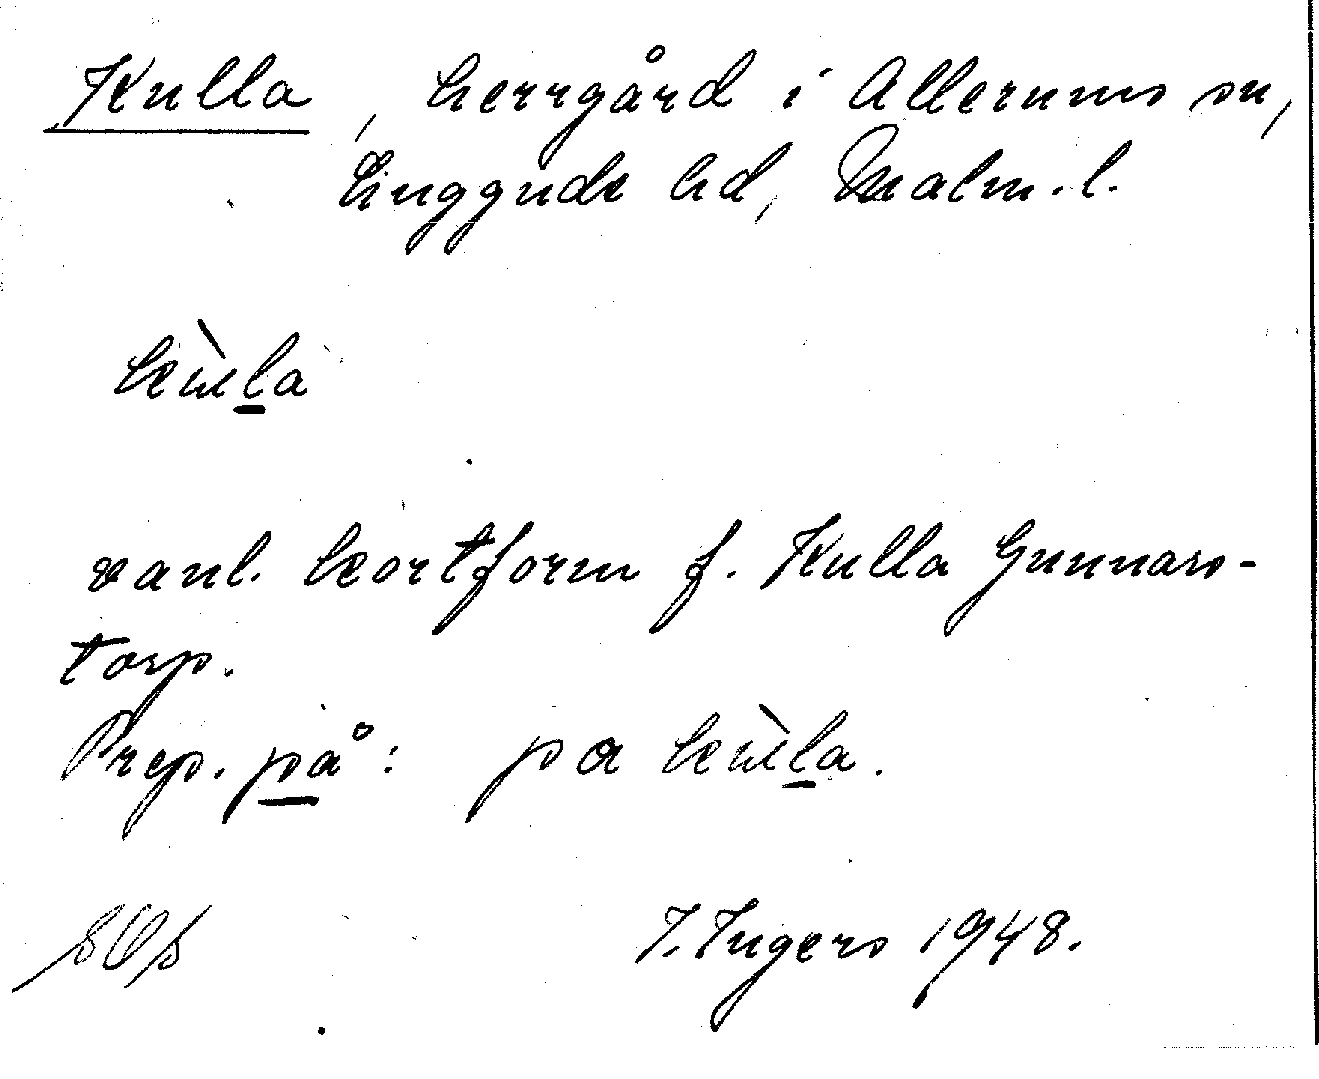 Kulla, herrgård i Allerums sn,
Luggude hd, Malm. l.
kùl̠a
vanl. kortform f. Kulla Gunnars-
torp.
Prep. på: pa kùl̠a.
I. Ingers 1948.